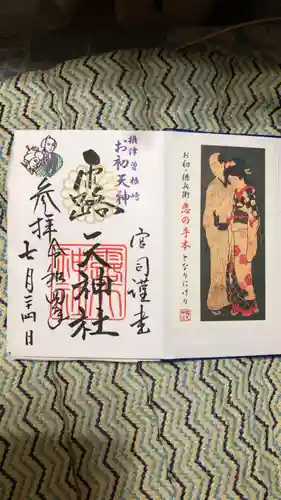 お初・徳兵衛
恋の手本となりにけり
宮司謹書
摂津 曽根崎
お初天神
露天神社
令和四年
七月二十四日
参拝